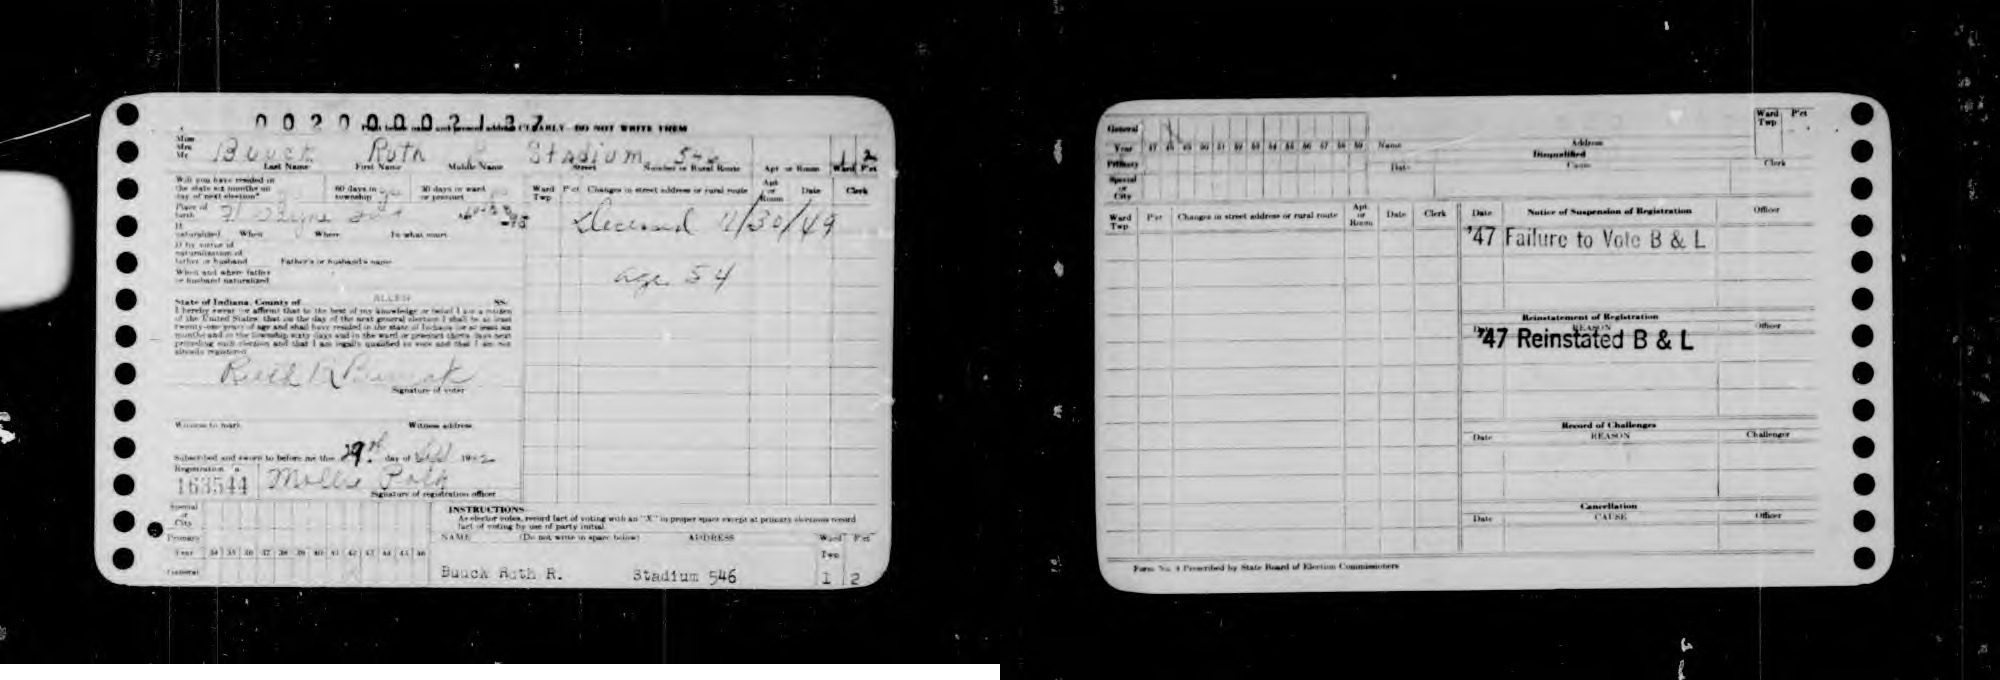 002000002137
Print below name and present address CLEARLY - DO NOT WRITE THEM
Miss
Mrs.
Mr. Buuck Ruth R Stadium 546 1 2
Last Name First Name Middle Name Street Number or Rural Route Apt. or Room Ward Pct.
Will you have resided in
the state six months on
day of next election?
60 days in
township
30 days in ward
or precinct
Place of
birth Ft Wayne Ind
If
naturalized When Where In what court
If by virtue of
naturalization of
father or husband Father's or husband's name
When and where father
or husband naturalized
State of Indiana, County of ALLEN SS:
I hereby swear or affirm that to the best of my knowledge or belief I am a citizen
of the United States, that on the day of the next general election I shall be at least
twenty-one years of age and shall have resided in the state of Indiana for at least six
months and in the township sixty days and in the ward or precinct thirty days next
preceding such election and that I am legally qualified to vote and that I am not
already registered
Ruth R Buuck
Signature of voter
Witness to mark Witness address
Subscribed and sworn to before me this 29th day of 19
Registration
163544 Mollie Polk
Signature of registration officer
Ward
Twp Pct Changes in street address or rural route Apt.
or
Room Date Clerk
Deceased 11/30/49
age 54
Special
or
City
Primary
Year 34 35 36 37 38 39 40 41 42 43 44 45 46
General
INSTRUCTIONS
As elector votes, record fact of voting with an "X" in proper space except at primary elections record
fact of voting by use of party initial.
NAME (Do not write in space below) ADDRESS Ward Pct
Twp
Buuck Ruth R. Stadium 546 1 2
General
Year 47 48 49 50 51 52 53 54 55 56 57 58 59
Primary
Special
or
City
Name Address Ward
Twp Pct
Disqualified
Date Cause Clerk
Ward
Twp Pct Changes in street address or rural route Apt.
or
Room Date Clerk
Date Notice of Suspension of Registration Officer
'47 Failure to Vote B & L
Reinstatement of Registration
Date REASON Officer
'47 Reinstated B & L
Record of Challenges
Date REASON Challenger
Cancellation
Date CAUSE Officer
Form No. 4 Prescribed by State Board of Election Commissioners